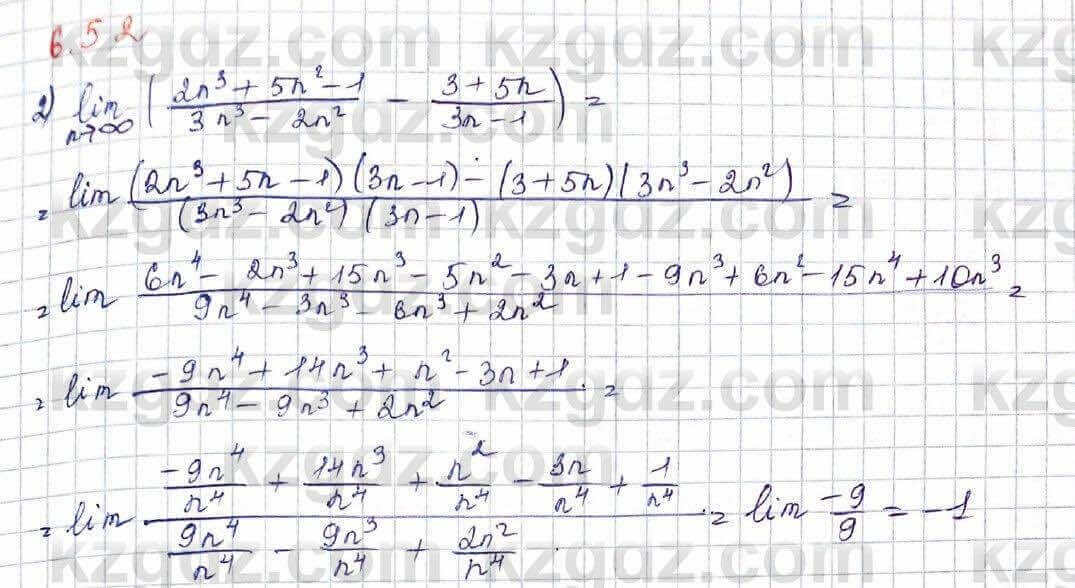 6.52
2) lim n→∞ ( (2n³ + 5n² - 1)/(3n³ - 2n²) - (3 + 5n)/(3n - 1) ) =
= lim ((2n³ + 5n - 1)(3n - 1) - (3 + 5n)(3n³ - 2n²))/((3n³ - 2n²)(3n - 1)) =
= lim (6n⁴ - 2n³ + 15n³ - 5n² - 3n + 1 - 9n³ + 6n² - 15n⁴ + 10n³)/(9n⁴ - 3n³ - 6n³ + 2n²) =
= lim (-9n⁴ + 14n³ + n² - 3n + 1)/(9n⁴ - 9n³ + 2n²) =
= lim (-9n⁴/n⁴ + 14n³/n⁴ + n²/n⁴ - 3n/n⁴ + 1/n⁴)/(9n⁴/n⁴ - 9n³/n⁴ + 2n²/n⁴) = lim -9/9 = -1
kzgdz.com